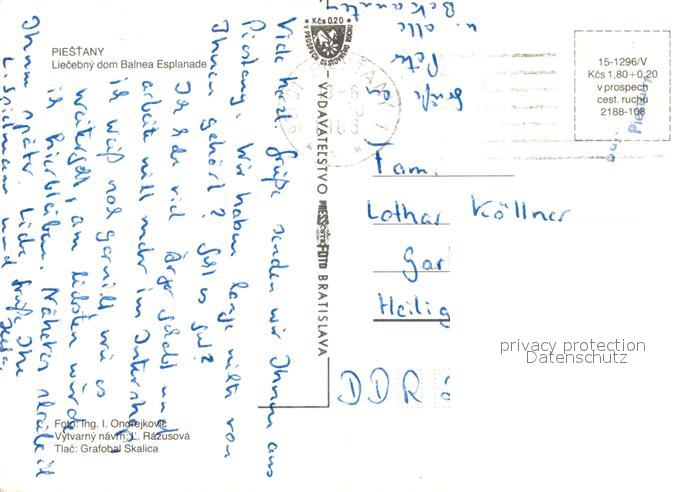 PIEŠŤANY
Liečebný dom Balnea Esplanade
Viele herzl. Grüße senden wir Ihnen aus
Piestany. Wir haben lange nichts von
Ihnen gehört? Geht es gut?
Ich habe viel Ärger gehabt und
arbeite nicht mehr im Intershop,
ich weiß noch garnicht wie es
weitergeht, am liebsten würde
ich hierbleiben. Näheres schreibe ich
Ihnen später. Liebe Grüße Ihre
und
u. alle
Bekannten
Grüße an Peter
Kčs 0.20
V PROSPECH CESTOVNÉHO RUCHU
VYDAVATEĽSTVO PRESSFOTO BRATISLAVA
15-1296/V
Kčs 1,80+0,20
v prospech
cest. ruchu
2188-108
Fam.
Lothar Köllner
Gar
Heilig
DDR
privacy protection
Datenschutz
Foto: Ing. I. Ondrejkovič
Výtvarný návrh: Ľ. Rázusová
Tlač: Grafobal Skalica